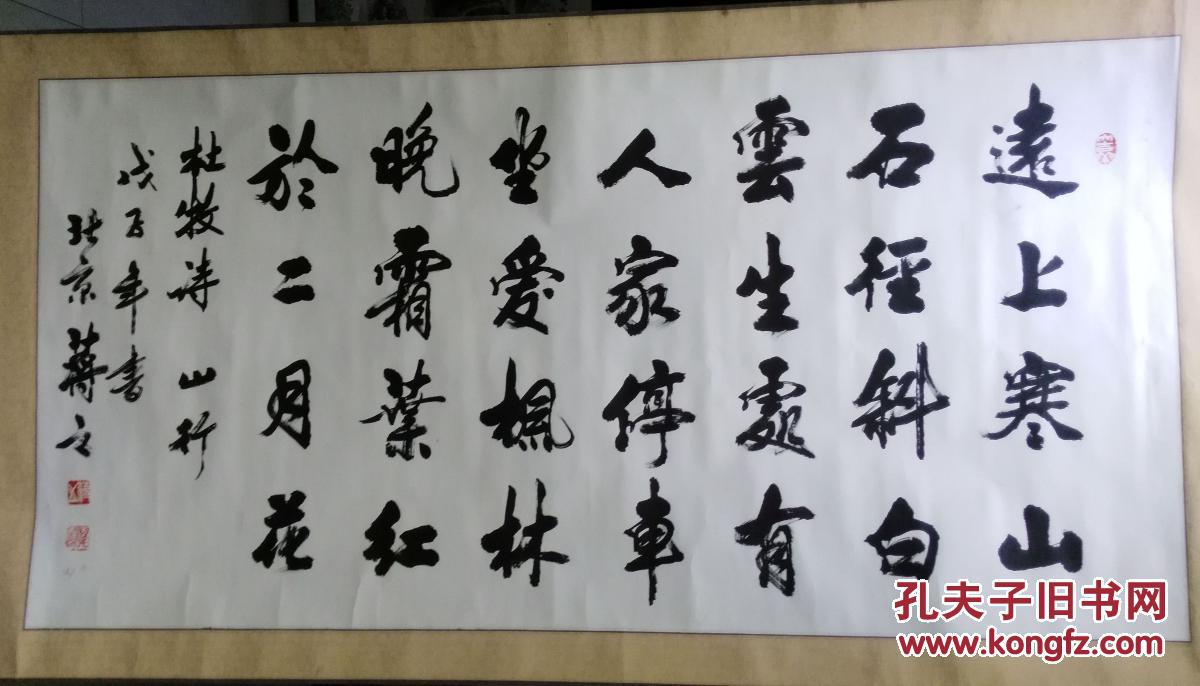 遠上寒山
石徑斜白
雲生處有
人家停車
坐愛楓林
晚霜葉紅
於二月花
杜牧詩 山行
戊子年書
京蔣
孔夫子旧书网
www.kongfz.com